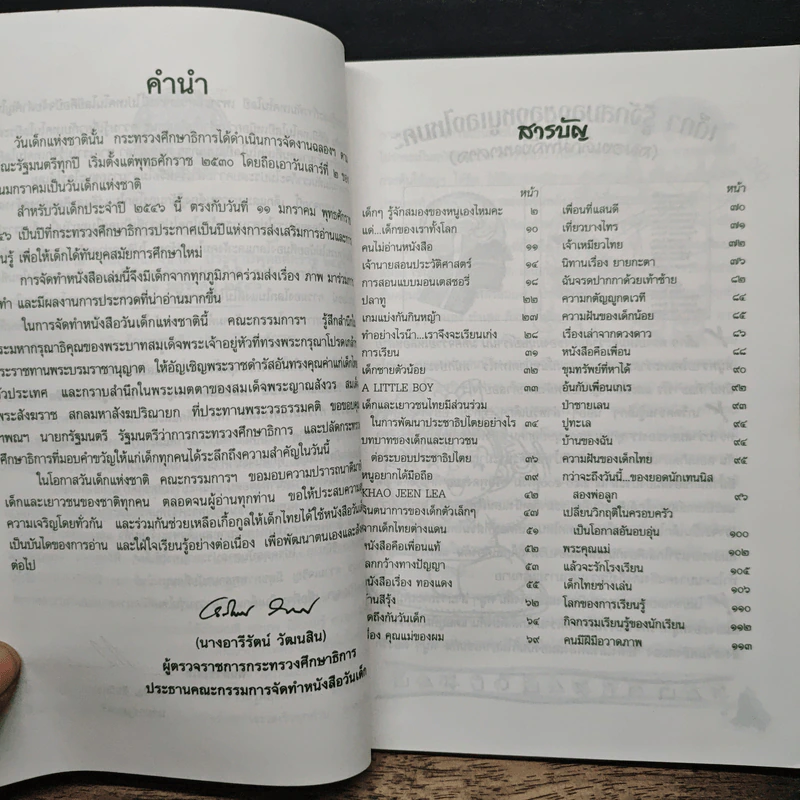 คำนำ
วันเด็กแห่งชาตินั้น กระทรวงศึกษาธิการได้ดำเนินการจัดงานฉลองฯ ตาม
คณะรัฐมนตรีทุกปี เริ่มตั้งแต่พุทธศักราช ๒๕๓๐ โดยถือเอาวันเสาร์ที่ ๒ ของ
มกราคมเป็นวันเด็กแห่งชาติ
สำหรับวันเด็กประจำปี ๒๕๔๖ นี้ ตรงกับวันที่ ๑๑ มกราคม พุทธศักราช
๔๖ เป็นปีที่กระทรวงศึกษาธิการประกาศเป็นปีแห่งการส่งเสริมการอ่านและการ
นรู้ เพื่อให้เด็กได้ทันยุคสมัยการศึกษาใหม่
การจัดทำหนังสือเล่มนี้จึงมีเด็กจากทุกภูมิภาคร่วมส่งเรื่อง ภาพ มาร่วม
ทำ และมีผลงานการประกวดที่น่าอ่านมากขึ้น
ในการจัดทำหนังสือวันเด็กแห่งชาตินี้ คณะกรรมการฯ รู้สึกสำนึกใน
ระมหากรุณาธิคุณของพระบาทสมเด็จพระเจ้าอยู่หัวที่ทรงพระกรุณาโปรดเกล้าฯ
ระราชทานพระบรมราชานุญาต ให้อัญเชิญพระราชดำรัสอันทรงคุณค่าแก่เด็กไทย
ทั่วประเทศ และกราบสำนึกในพระเมตตาของสมเด็จพระญาณสังวร สมเด็จ
พระสังฆราช สกลมหาสังฆปริณายก ที่ประทานพระวรธรรมคติ ขอขอบคุณ
ฯพณฯ นายกรัฐมนตรี รัฐมนตรีว่าการกระทรวงศึกษาธิการ และปลัดกระทรวง
ศึกษาธิการที่มอบคำขวัญให้แก่เด็กทุกคนได้ระลึกถึงความสำคัญในวันนี้
ในโอกาสวันเด็กแห่งชาติ คณะกรรมการฯ ขอมอบความปรารถนาดีมาที่
เด็กและเยาวชนของชาติทุกคน ตลอดจนผู้อ่านทุกท่าน ขอให้ประสบความ
ความเจริญโดยทั่วกัน และร่วมกันช่วยเหลือเกื้อกูลให้เด็กไทยได้ใช้หนังสือวันเด็ก
เป็นบันไดของการอ่าน และใฝ่ใจเรียนรู้อย่างต่อเนื่อง เพื่อพัฒนาตนเองและสังคม
ต่อไป
(นางอารีรัตน์ วัฒนสิน)
ผู้ตรวจราชการกระทรวงศึกษาธิการ
ประธานคณะกรรมการจัดทำหนังสือวันเด็ก
สารบัญ
หน้า
เด็กๆ รู้จักสมองของหนูเองไหมคะ ๒
แด่...เด็กของเราทั้งโลก ๑๐
คนไม่อ่านหนังสือ ๑๑
เจ้านายสอนประวัติศาสตร์ ๑๔
การสอนแบบมอนเตสซอรี่ ๑๘
ปลาทู ๒๒
เกมแบ่งกันกินหญ้า ๒๗
ทำอย่างไรน้า...เราจึงจะเรียนเก่ง ๒๘
การเรียน ๓๑
เด็กชายตัวน้อย ๓๒
A LITTLE BOY ๓๓
เด็กและเยาวชนไทยมีส่วนร่วม
ในการพัฒนาประชาธิปไตยอย่างไร ๓๔
บทบาทของเด็กและเยาวชน
ต่อระบอบประชาธิปไตย ๓๖
หนูอยากได้มือถือ ๓๙
KHAO JEEN LEA ๔๒
จินตนาการของเด็กตัวเล็กๆ ๔๗
จากเด็กไทยต่างแดน ๕๑
หนังสือคือเพื่อนแท้ ๕๒
โลกกว้างทางปัญญา ๕๓
หนังสือเรื่อง ทองแดง ๕๕
บ้านสีรุ้ง ๖๒
คิดถึงกันวันเด็ก ๖๔
เรื่อง คุณแม่ของผม ๖๙
หน้า
เพื่อนที่แสนดี ๗๐
เที่ยวบางไทร ๗๑
เจ้าเหมียวไทย ๗๒
นิทานเรื่อง ยายกะตา ๗๖
ฉันจรดปากกาด้วยเท้าซ้าย ๘๒
ความกตัญญูกตเวที ๘๔
ความฝันของเด็กน้อย ๘๕
เรื่องเล่าจากดวงดาว ๘๖
หนังสือคือเพื่อน ๘๘
ขุมทรัพย์ที่หาได้ ๙๐
อันกับเพื่อนเกเร ๙๒
ป่าชายเลน ๙๓
ปูทะเล ๙๔
บ้านของฉัน ๙๔
ความฝันของเด็กไทย ๙๕
กว่าจะถึงวันนี้...ของยอดนักเทนนิส
สองพ่อลูก ๙๖
เปลี่ยนวิกฤติในครอบครัว
เป็นโอกาสอันอบอุ่น ๑๐๐
พระคุณแม่ ๑๐๒
แล้วจะรักโรงเรียน ๑๐๕
เด็กไทยช่างเล่น ๑๐๖
โลกของการเรียนรู้ ๑๑๐
กิจกรรมเรียนรู้ของนักเรียน ๑๑๒
คนมีฝีมือวาดภาพ ๑๑๓